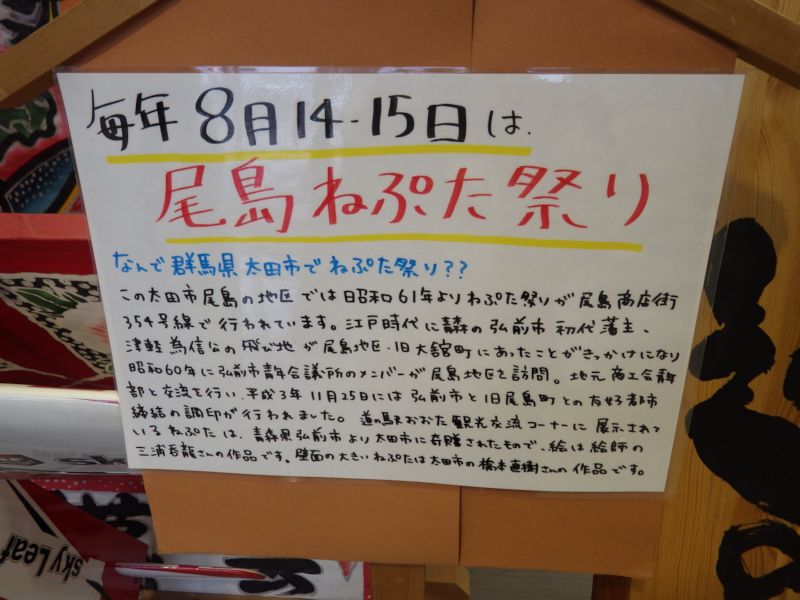 毎年8月14-15日は.
尾島ねぷた祭り
なんで群馬県太田市でねぷた祭り??
この太田市尾島の地区では昭和61年よりねぷた祭りが尾島商店街
354号線で行われています。江戸時代に青森の弘前市初代藩主、
津軽為信公の飛び地が尾島地区・旧大舘町にあったことがきっかけになり
昭和60年に弘前市青年会議所のメンバーが尾島地区を訪問。地元商工会青年
部と交流を行い、平成3年11月25日には弘前市と旧尾島町との友好都市
締結の調印が行われました。道の駅おおた観光交流コーナーに展示されて
いるねぷたは、青森県弘前市より太田市に寄贈されたもので、絵は絵師の
三浦呑龍さんの作品です。壁面の大きいねぷたは太田市の橋本直樹さんの作品です。
sky Leaf